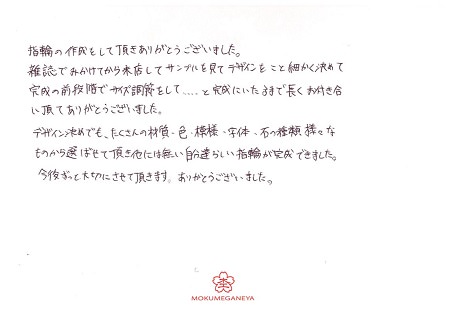 指輪の作成をして頂きありがとうございました。
雑誌でみかけてから来店してサンプルを見てデザインをこと細かく決めて
完成の前段階でサイズ調節をして……と完成にいたるまで長くお付き合
い頂てありがとうございました。
デザイン決めでも、たくさんの材質・色・模様・字体・石の種類 様々な
ものから選ばせて頂き他には無い自分達らしい指輪が完成できました。
今後ずっと大切にさせて頂きます。ありがとうございました。
MOKUMEGANEYA